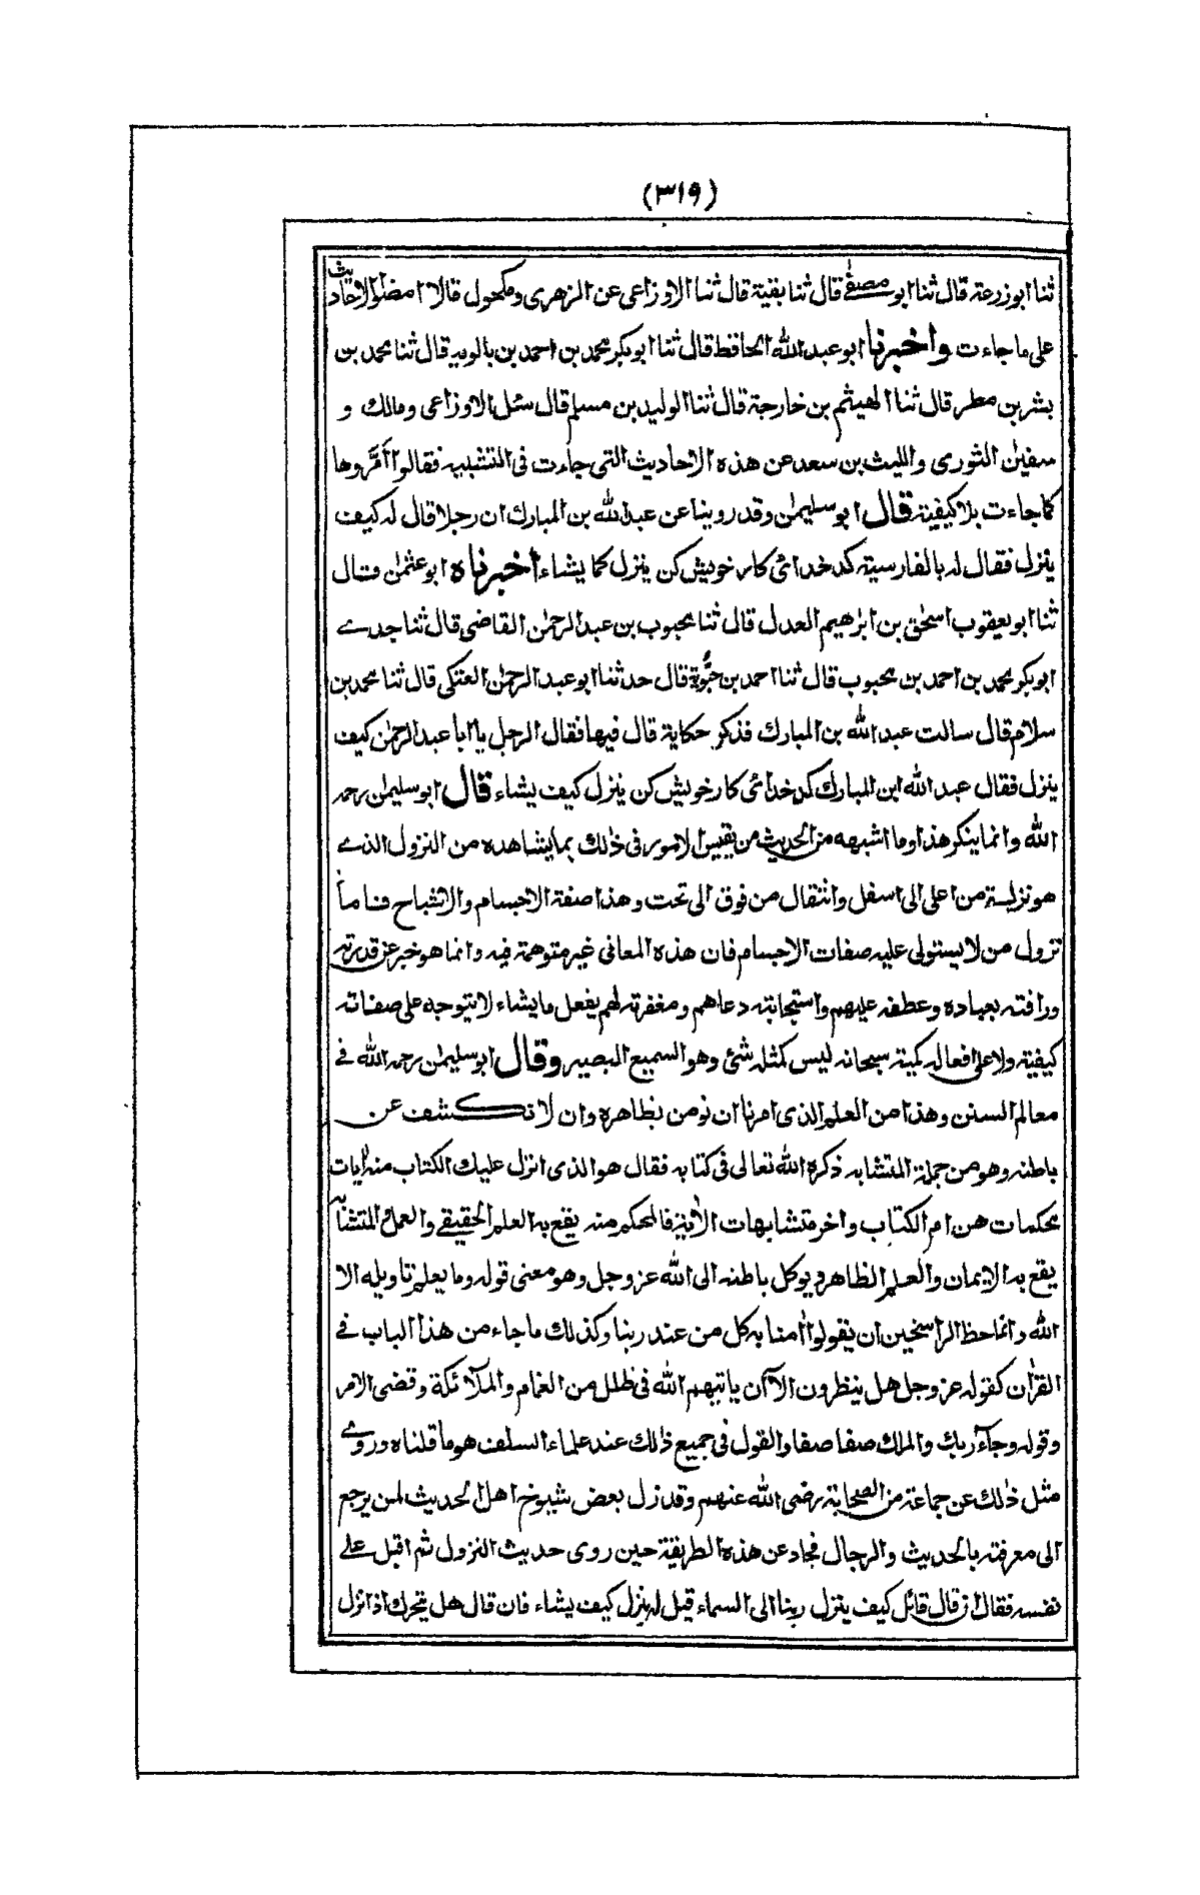 (٣١٩)
ثنا ابو زرعة قال ثنا ابو مصفٰى قال ثنا بقية قال ثنا الاوزاعى عن الزهرى ومكحول قالا امضوا الاحاديث
على ما جاءت واخبرنا ابو عبد الله الحافظ قال ثنا ابو بكر محمد بن احمد بن بالويه قال ثنا محمد بن
بشر بن مطر قال ثنا الهيثم بن خارجة قال ثنا الوليد بن مسلم قال سئل الاوزاعى ومالك و
سفيٰن الثورى والليث بن سعد عن هذه الاحاديث التى جاءت فى التشبيه فقالوا اَمِرُّوها
كما جاءت بلا كيفية قال ابو سليمٰن وقد روينا عن عبد الله بن المبارك ان رجلا قال له كيف
ينزل فقال له بالفارسية كدخدائى كار خويش كن ينزل كما يشاء اخبرناه ابو عثمٰن قال
ثنا ابو يعقوب اسحٰق بن ابرٰهيم العدل قال ثنا محبوب بن عبد الرحمٰن القاضى قال ثنا جدے
ابو بكر محمد بن احمد بن محبوب قال ثنا احمد بن حَيُّوة قال حدثنا ابو عبد الرحمٰن العتكى قال ثنا محمد بن
سلام قال سالت عبد الله بن المبارك فذكر حكاية قال فيها فقال الرجل يا ابا عبد الرحمٰن كيف
ينزل فقال عبد الله ابن المبارك كدخدائى كار خويش كن ينزل كيف يشاء قال ابو سليمٰن رحمه
الله وانما ينكر هذا وما اشبهه من الحديث من يقيس الامور فى ذٰلك بما يشاهده من النزول الذے
هو نزلة من اعلى الى اسفل وانتقال من فوق الى تحت وهذا صفة الاجسام والاشباح فاما
نزول من لا يستولى عليه صفات الاجسام فان هذه المعانى غير متوهمة فيه وانما هو خبر عن قدرته
ورافته بعباده وعطفه عليهم واستجابته دعاهم ومغفرته لهم يفعل ما يشاء لا يتوجه على صفاته
كيفية ولا على افعاله كمية سبحانه ليس كمثله شئ وهو السميع البصير وقال ابو سليمٰن رحمه الله فے
معالم السنن وهذا من العلم الذى امرنا ان نومن بظاهره وان لا نكشف عن
باطنه وهو من جملة المتشابه ذكره الله تعالى فى كتابه فقال هو الذى انزل عليك الكتاب منه اٰيات
محكمات هن ام الكتاب واخر متشابهات الاٰية فالمحكم منه يقع به العلم الحقيقے والعمل والمتشابه
يقع به الايمان والعلم الظاهر ويوكل باطنه الى الله عز وجل وهو معنى قوله وما يعلم تاويله الا
الله وانما حظ الراسخين ان يقولوا اٰمنا به كل من عند ربنا وكذلك ما جاء من هذا الباب فے
القراٰن كقوله عز وجل هل ينظرون الا ان ياتيهم الله فى ظلل من الغمام والملآئكة وقضى الامر
وقوله وجآء ربك والملك صفا صفا والقول فى جميع ذٰلك عند علماء السلف هو ما قلناه وروے
مثل ذٰلك عن جماعة من الصحابة رضى الله عنهم وقد زل بعض شيوخ اهل الحديث لمن يرجع
الى معرفته بالحديث والرجال فحاد عن هذه الطريقة حين روى حديث النزول ثم اقبل علے
نفسه فقال ان قال قائل كيف ينزل ربنا الى السماء قيل له ينزل كيف يشاء فان قال هل يتحرك اذا نزل